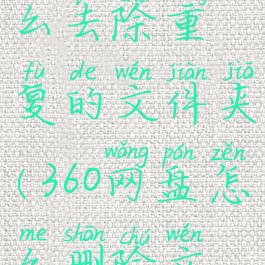 么去除重
fù de wén jiàn jiā
复的文件夹
wǎng pán zěn
(360网盘怎
me shān chú wén
么删除文